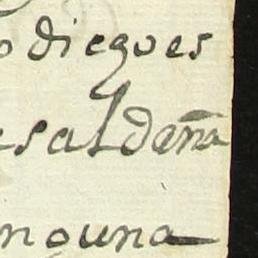 odieques
esaldeña
noguna